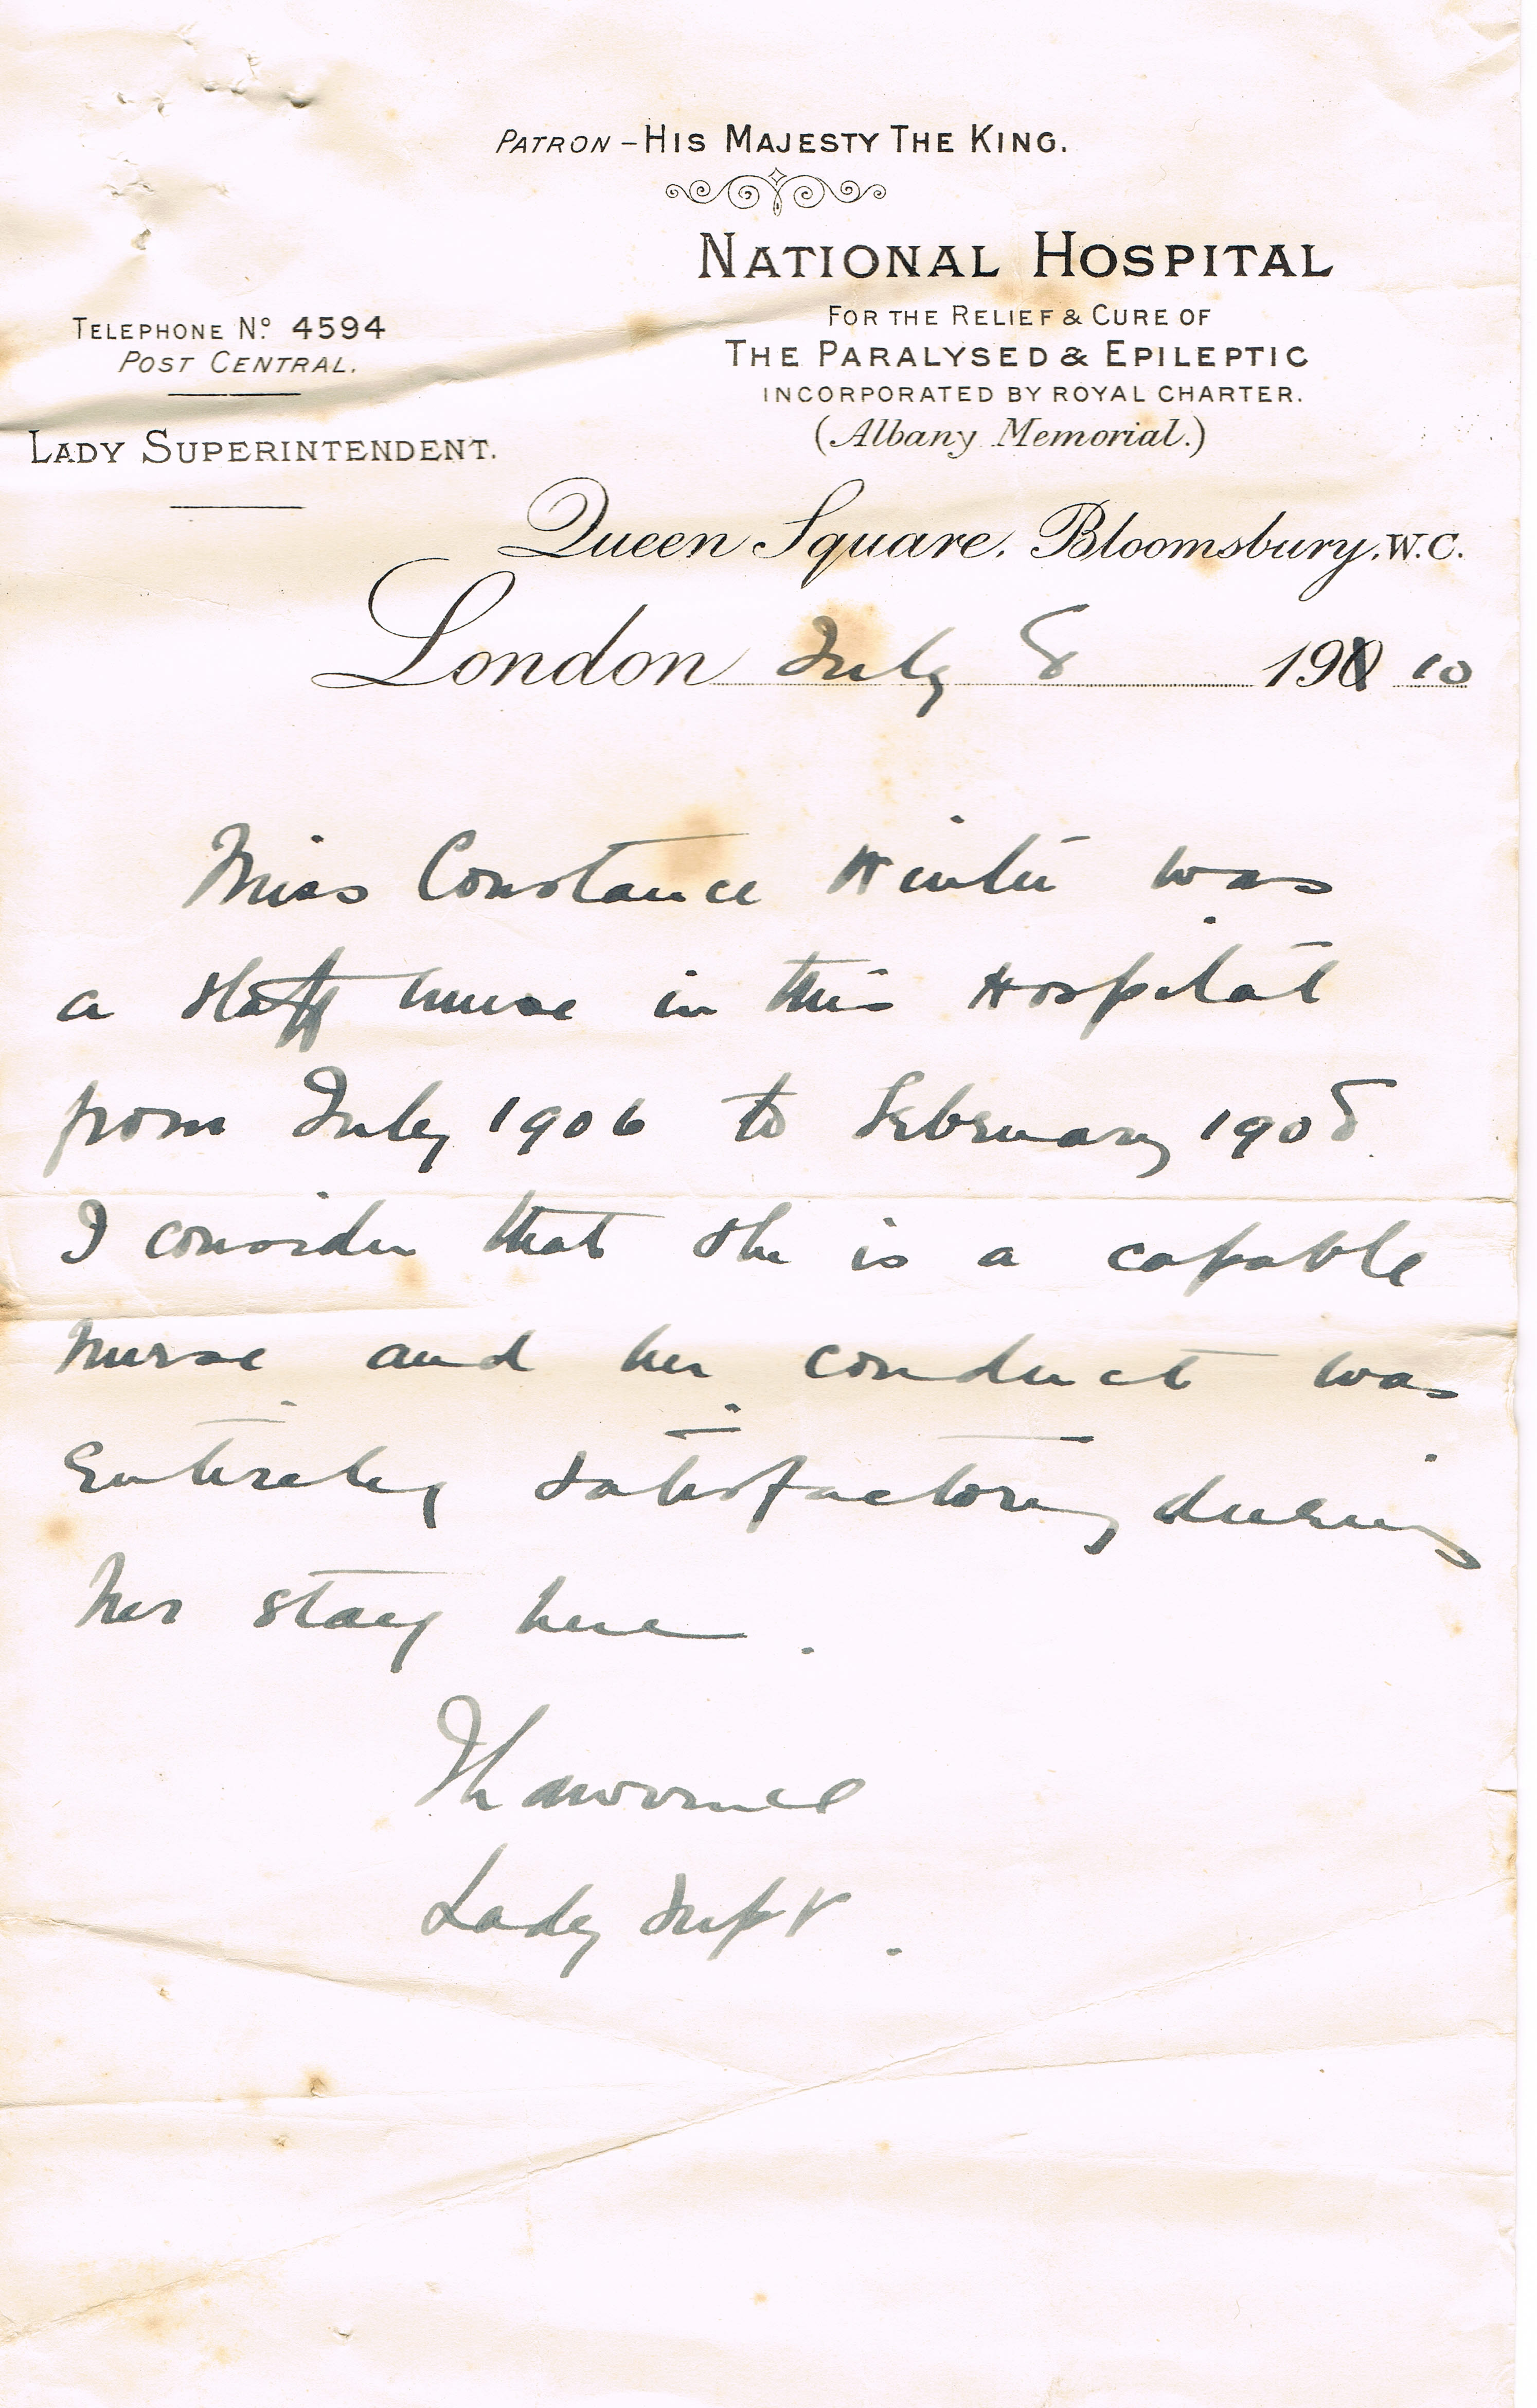 PATRON – HIS MAJESTY THE KING.
NATIONAL HOSPITAL
FOR THE RELIEF & CURE OF
THE PARALYSED & EPILEPTIC
INCORPORATED BY ROYAL CHARTER.
(Albany Memorial.)
TELEPHONE No. 4594
POST CENTRAL.
LADY SUPERINTENDENT.
Queen Square, Bloomsbury, W.C.
London July 8 190 10
Miss Constance was
a staff nurse in this Hospital
from July 1906 to February 1908.
I consider that she is a capable
nurse and her conduct was
entirely satisfactory during
her stay here.
Lady Supt.